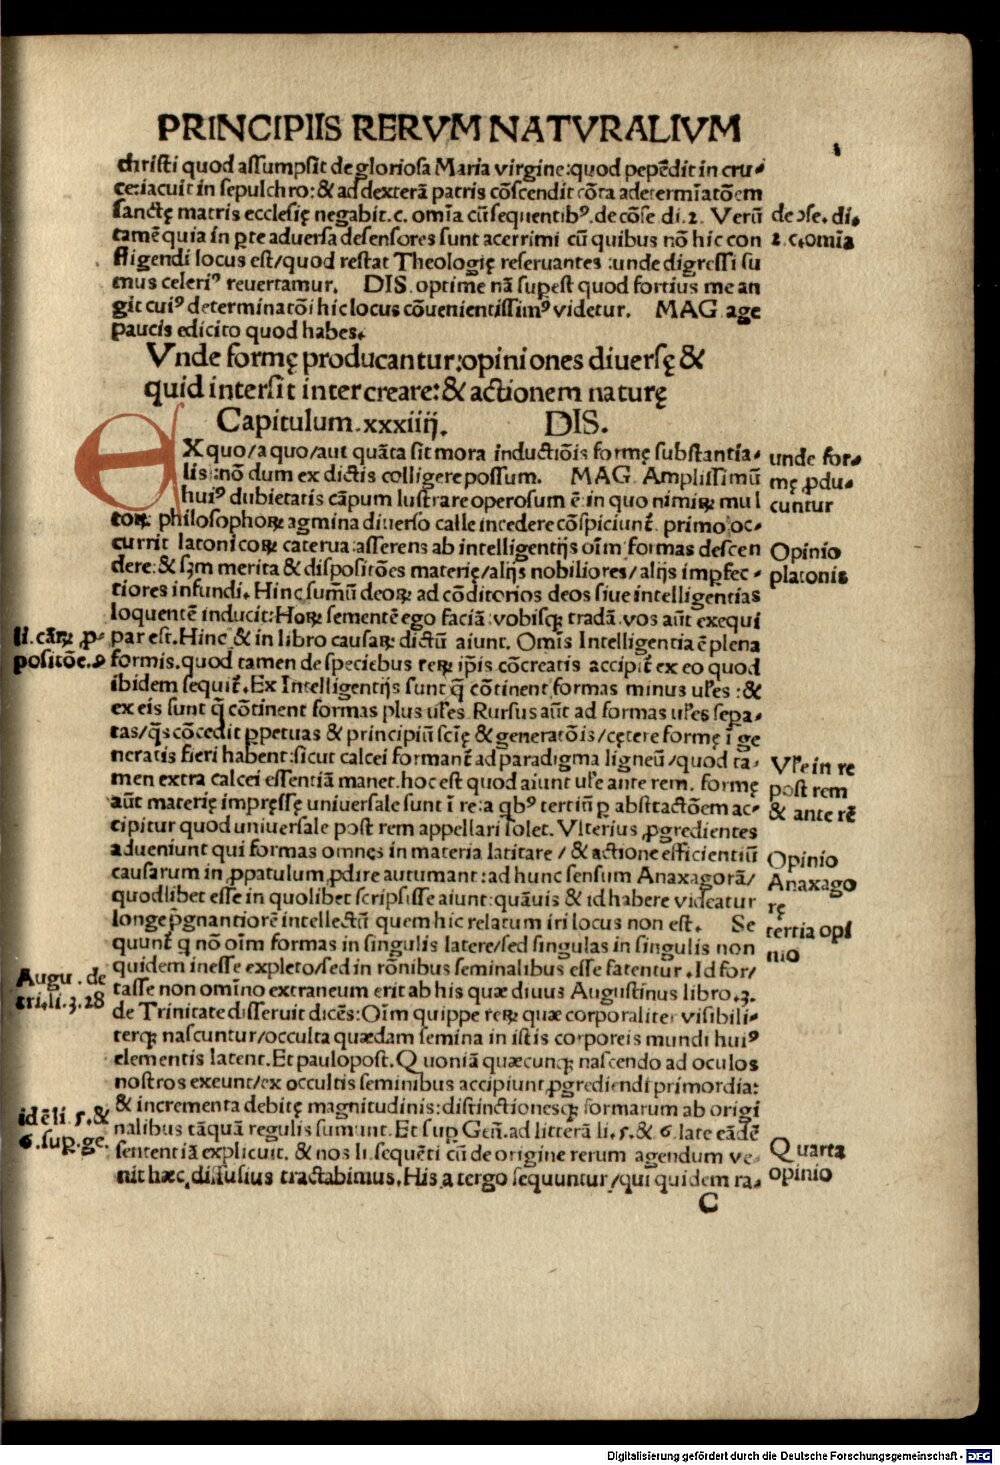 PRINCIPIIS RERVM NATVRALIVM
christi quod assumpsit de gloriosa Maria virgine:quod pepēdit in cru-
ce:iacuit in sepulchro:& ad dexterā patris cōscendit cōtra ad etermīatōem
sanctę matris ecclesię negabit.c. omīa cū sequentibꝰ.de cōse di.2. Verū
tamē quia in ꝑte aduersa defensores sunt acerrimi cū quibus nō hic con
fligendi locus est/quod restat Theologię reseruantes :unde digressi su
mus celeriꝰ reuertamur. DIS.optime nā supest quod fortius me an
git cuiꝰ determinatōi hic locus cōuenientissimꝰ videtur. MAG age
paucis edicito quod habes.
de ɔse. di.
2. c.omīa
Vnde formę producantur:opiniones diuersę &
quid intersit inter creare:& actionem naturę
Capitulum.xxxiiij. DIS.
EX quo/a quo/aut quāta sit mora inductiōis formę substantia-
lis:nō dum ex dictis colligere possum. MAG. Amplissimū
huiꝰ dubietatis cāpum lustrare operosum ē in quo nimiꝝ mul
toꝝ philosophoꝝ agmina diuerso calle incedere cōspiciunt̄. primo oc-
currit latonicoꝝ caterua:asserens ab intelligentijs oīm formas descen
dere:& sꝫm merita & dispositōes materię/alijs nobiliores/alijs imꝑfec-
tiores infundi. Hinc sumū deoꝝ ad cōditorios deos siue intelligentias
loquentē inducit:Hoꝝ sementē ego faciā:vobisqꝫ tradā.vos aūt exequi
par est.Hinc & in libro causaꝝ dictū aiunt. Omīs Intelligentia ē plena
formis.quod tamen de speciebus reꝝ ip̄is cōcreatis accipit̄ ex eo quod
ibidem sequit̄.Ex Intelligentijs sunt q̄ cōtinent formas minus ul̄es :&
ex eis sunt q̄ cōtinent formas plus ul̄es Rursus aūt ad formas ul̄es sepa-
tas/q̄s cōcedit ꝑpetuas & principiū scīę & generatōis/cętere formę ī ge
neratis fieri habent:sicut calcei formant̄ ad paradigma ligneū/quod ta-
men extra calcei essentiā manet.hoc est quod aiunt ul̄e ante rem. formę
aūt materię impręssę uniuersale sunt ī re:a qbꝰ tertiū ꝑ abstractōem ac-
cipitur quod uniuersale post rem appellari solet. Vlterius ꝓgredientes
adueniunt qui formas omnęs in materia latitare / & actione efficientiū
causarum in ꝓpatulum ꝓdire autumant:ad hunc sensum Anaxagorā/
quodlibet esse in quolibet scripsisse aiunt:quāuis & id habere videatur
longe p̄gnantiorē intellectū quem hic relatum iri locus non est. Se
quunt̄ q nō oīm formas in singulis latere/sed singulas in singulis non
quidem inesse expleto/sed in rōnibus seminalibus esse fatentur .Id for/
tasse non omīno extraneum erit ab his quæ diuus Augustinus libro.3.
de Trinitate disseruit dicēs:Oīm quippe reꝝ quæ corporaliter visibili-
terqꝫ nascuntur/occulta quædam semina in istis corporeis mundi huiꝰ
elementis latent.Et paulopost.Quoniā quæcunqꝫ nascendo ad oculos
nostros exeunt/ex occultis seminibus accipiunt ꝓgrediendi primordia:
& incrementa debitę magnitudinis:distinctionesqꝫ formarum ab origi
nalibus tāquā regulis sumunt. Et suꝑ Geñ.ad litterā li.5.& 6.late eādē
sententiā explicuit. & nos li.sequēti cū de origine rerum agendum ve-
nit hæc diffusius tractabimus.His a tergo sequuntur/qui quidem ra-
C
unde for-
mę ꝓdu-
cuntur
Opinio
platonis
li.cāꝝ ꝓ-
positōe.
Vl̄e in re
post rem
& ante rē
Opinio
Anaxago
rę
tertia opi
nio
Augu.de
tri.li.3.28
idē li 5.&
6.suꝑ.ge.
Quarta
opinio
Digitalisierung gefördert durch die Deutsche Forschungsgemeinschaft - DFG